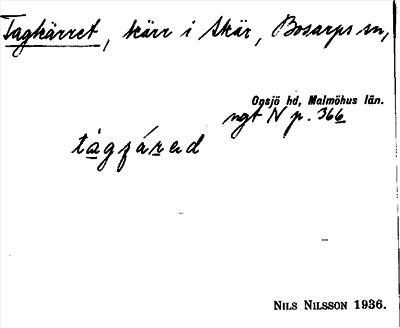 Tagkärret, kärr i Skär, Bosarps sn,
Onsjö hd, Malmöhus län.
ngt N p. 366
tágfárəd
NILS NILSSON 1936.